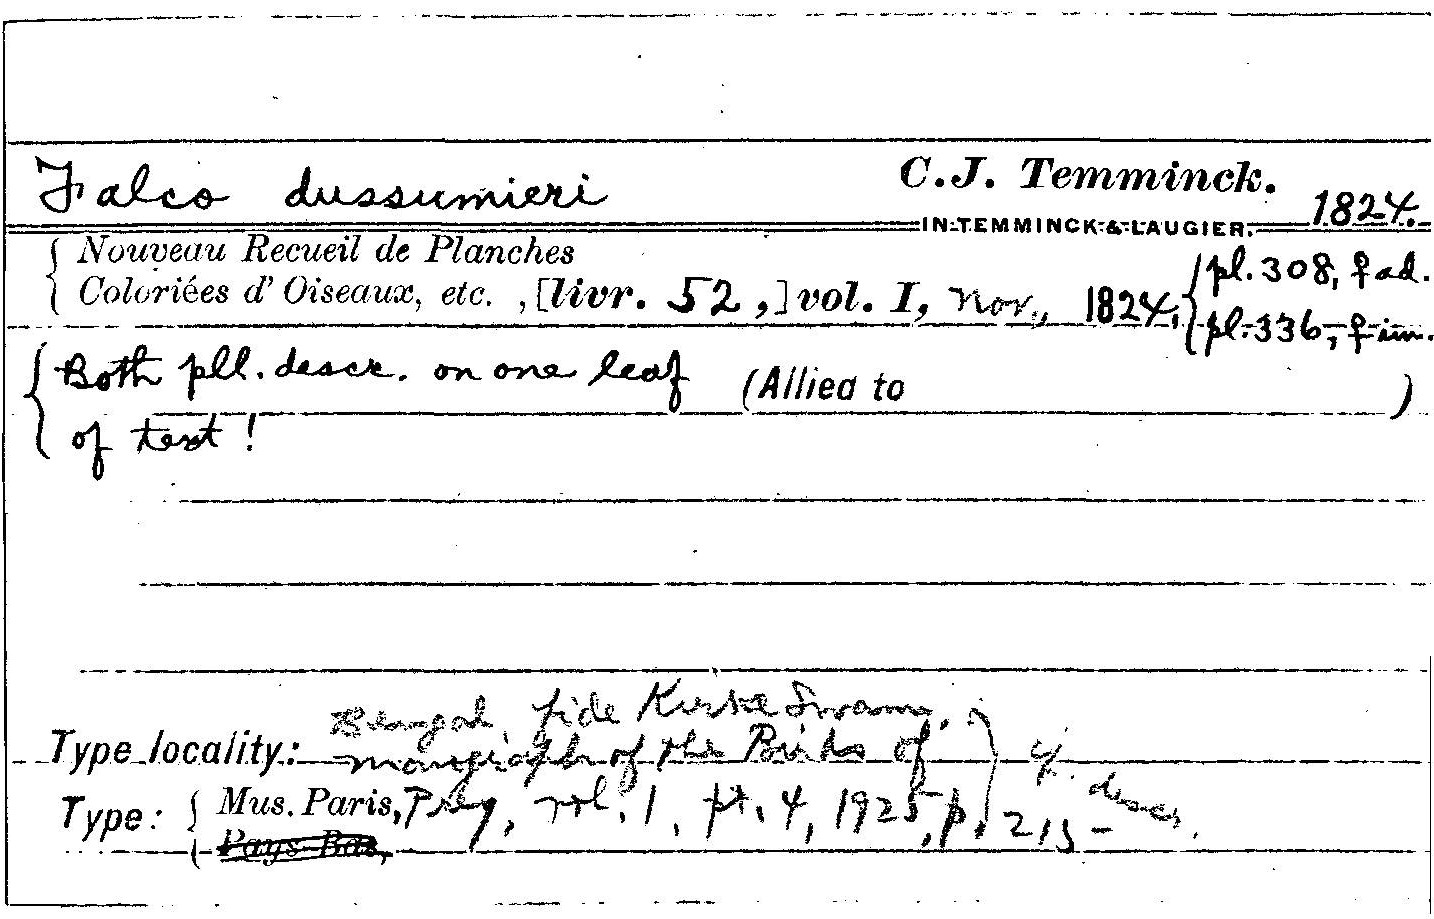 Falco dussumieri C.J. Temminck.
IN TEMMINCK & LAUGIER. 1824.
{ Nouveau Recueil de Planches
Coloriées d' Oiseaux, etc. , [livr. 52 ,] vol. I, Nov., 1824, { pl. 308, ♀ ad.
pl. 336, ♀ im.
{ Both pll. descr. on one leaf (Allied to )
of text !
Bengal fide Kirke Swann,
Type locality: monograph of the Birds of } cf. descr.
Type: { Mus. Paris, Prey, vol. 1, pt. 4, 1925, p. 215-
Pays-Bas,